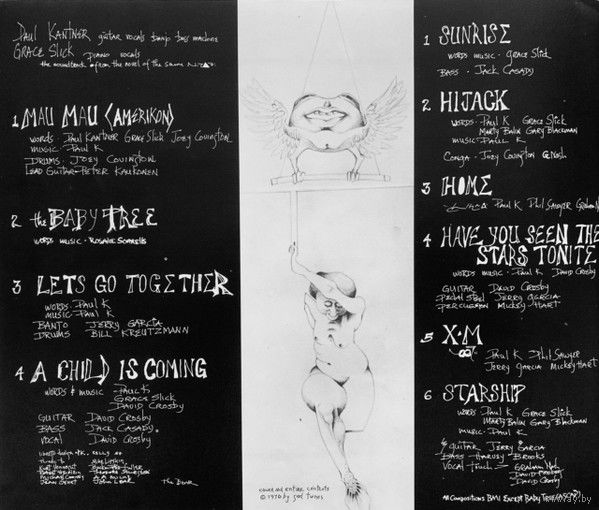 PAUL KANTNER guitar vocals banjo bass machine
GRACE SLICK piano vocals
the soundtrack from the novel of the same
1 MAU MAU (AMERIKON)
words · Paul Kantner Grace Slick Joey Covington
music · Paul K
Drums · Joey Covington
Lead Guitar · Peter Kaukonen
2 the BABY TREE
words music · Rosalie Sorrells
3 LETS GO TOGETHER
words Paul K
music Paul K
BANJO JERRY GARCIA
DRUMS BILL KREUTZMANN
4 A CHILD IS COMING
words & music - Paul K
GRACE SLICK
DAVID CROSBY
GUITAR DAVID CROSBY
BASS JACK CASADY
VOCAL DAVID CROSBY
thanks to
The Bear
cover and entire contents
© 1970 by god tunes
1 SUNRISE
words music · Grace Slick
BASS · JACK CASADY
2 HIJACK
words · Paul K Grace Slick
Marty Balin Gary Blackman
music · Paul K
Conga · Joey Covington
3 HOME
Paul K Phil Sawyer Graham
4 HAVE YOU SEEN THE
STARS TONITE
words music · Paul K David Crosby
GUITAR DAVID CROSBY
Pedal Steel JERRY GARCIA
Percussion MICKEY HART
5 X·M
Paul K Phil Sawyer
Jerry Garcia Mickey Hart
6 STARSHIP
words Paul K Grace Slick
Marty Balin Gary Blackman
music · Paul K
guitar Jerry Garcia
Bass Harvey Brooks
Vocal Graham Nash
David Crosby
All Compositions BMI Except Baby Tree (ASCAP)